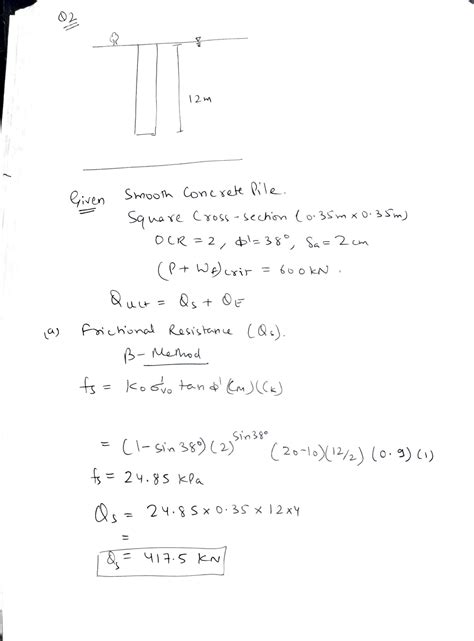 Q2
12m
Given Smooth Concrete Pile.
Square Cross-section (0.35m x 0.35m)
OCR = 2, ϕ' = 38°, Sa = 2 cm
(P + Wf)crit = 600 kN.
Qult = Qs + QE
(a) Frictional Resistance (Qs).
β- Method
fs = Ko σ'vo tan ϕ' (CM)(Ck)
= (1-sin 38°) (2)^sin38° (20-10)(12/2) (0.9) (1)
fs = 24.85 kPa
Qs = 24.85 x 0.35 x 12 x 4
=
Qs = 417.5 KN